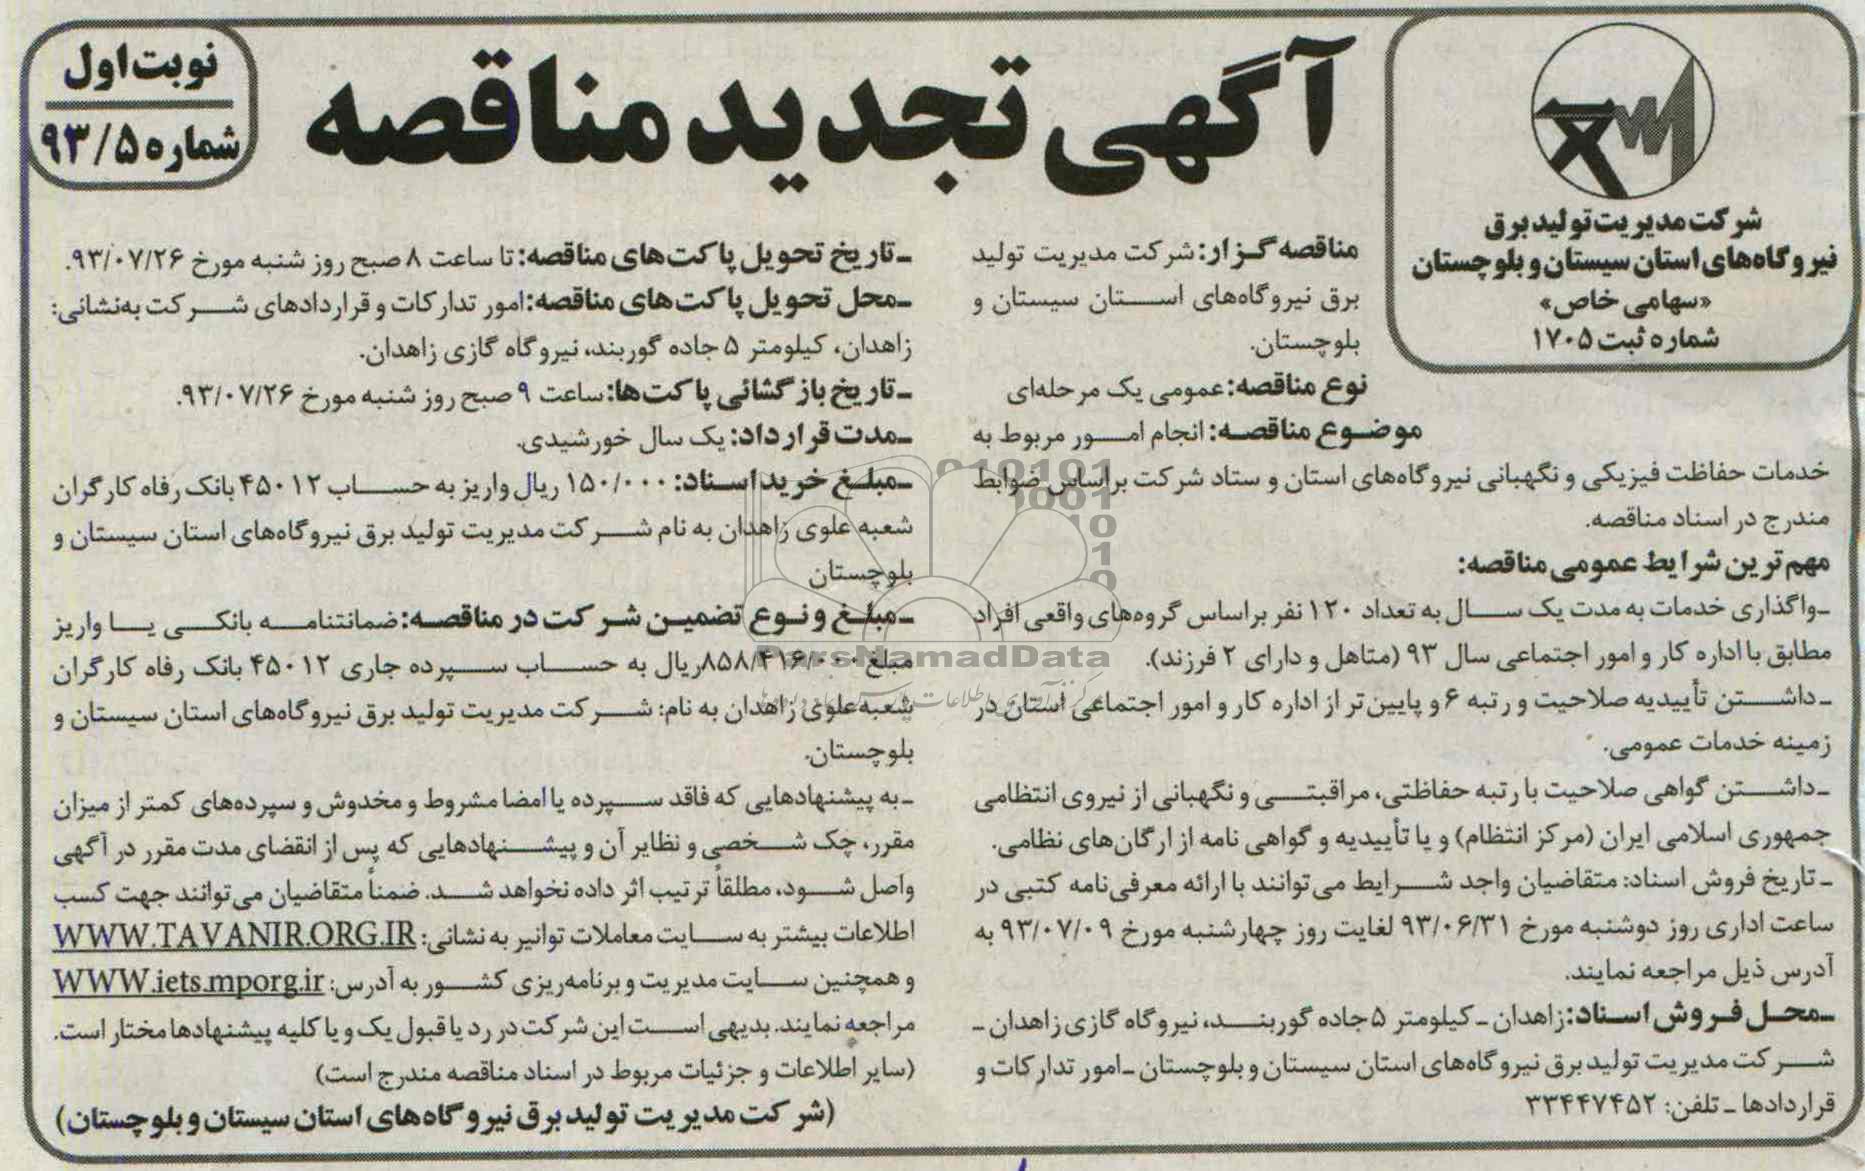 آگهی تجدید مناقصه
نوبت اول
شماره ۹۳/۵
شرکت مدیریت تولید برق
نیروگاه‌های استان سیستان و بلوچستان
«سهامی خاص»
شماره ثبت ۱۷۰۵
مناقصه گزار: شرکت مدیریت تولید
برق نیروگاه‌های استان سیستان و
بلوچستان.
نوع مناقصه: عمومی یک مرحله‌ای
موضوع مناقصه: انجام امور مربوط به
خدمات حفاظت فیزیکی و نگهبانی نیروگاه‌های استان و ستاد شرکت براساس ضوابط
مندرج در اسناد مناقصه.
مهم ترین شرایط عمومی مناقصه:
ـ واگذاری خدمات به مدت یک سال به تعداد ۱۲۰ نفر براساس گروه‌های واقعی افراد
مطابق با اداره کار و امور اجتماعی سال ۹۳ (متاهل و دارای ۲ فرزند).
ـ داشتن تأییدیه صلاحیت و رتبه ۶ و پایین‌تر از اداره کار و امور اجتماعی استان در
زمینه خدمات عمومی.
ـ داشتن گواهی صلاحیت با رتبه حفاظتی، مراقبتی و نگهبانی از نیروی انتظامی
جمهوری اسلامی ایران (مرکز انتظام) و یا تأییدیه و گواهی نامه از ارگان‌های نظامی.
ـ تاریخ فروش اسناد: متقاضیان واجد شرایط می‌توانند با ارائه معرفی‌نامه کتبی در
ساعت اداری روز دوشنبه مورخ ۹۳/۰۶/۳۱ لغایت روز چهارشنبه مورخ ۹۳/۰۷/۰۹ به
آدرس ذیل مراجعه نمایند.
ـ محل فروش اسناد: زاهدان ـ کیلومتر ۵ جاده گوربند، نیروگاه گازی زاهدان ـ
شرکت مدیریت تولید برق نیروگاه‌های استان سیستان و بلوچستان ـ امور تدارکات و
قراردادها ـ تلفن: ۳۳۴۴۷۴۵۲
ـ تاریخ تحویل پاکت‌های مناقصه: تا ساعت ۸ صبح روز شنبه مورخ ۹۳/۰۷/۲۶.
ـ محل تحویل پاکت‌های مناقصه: امور تدارکات و قراردادهای شرکت به‌نشانی:
زاهدان، کیلومتر ۵ جاده گوربند، نیروگاه گازی زاهدان.
ـ تاریخ بازگشائی پاکت‌ها: ساعت ۹ صبح روز شنبه مورخ ۹۳/۰۷/۲۶.
ـ مدت قرارداد: یک سال خورشیدی.
ـ مبلغ خرید اسناد: ۱۵۰/۰۰۰ ریال واریز به حساب ۴۵۰۱۲ بانک رفاه کارگران
شعبه علوی زاهدان به نام شرکت مدیریت تولید برق نیروگاه‌های استان سیستان و
بلوچستان
ـ مبلغ و نوع تضمین شرکت در مناقصه: ضمانتنامه بانکی یا واریز
مبلغ ۸۵۸/۴۱۶/۰۰۰ ریال به حساب سپرده جاری ۴۵۰۱۲ بانک رفاه کارگران
شعبه علوی زاهدان به نام: شرکت مدیریت تولید برق نیروگاه‌های استان سیستان و
بلوچستان.
ـ به پیشنهادهایی که فاقد سپرده یا امضا مشروط و مخدوش و سپرده‌های کمتر از میزان
مقرر، چک شخصی و نظایر آن و پیشنهادهایی که پس از انقضای مدت مقرر در آگهی
واصل شود، مطلقاً ترتیب اثر داده نخواهد شد. ضمناً متقاضیان می‌توانند جهت کسب
اطلاعات بیشتر به سایت معاملات توانیر به نشانی: WWW.TAVANIR.ORG.IR
و همچنین سایت مدیریت و برنامه‌ریزی کشور به آدرس: WWW.iets.mporg.ir
مراجعه نمایند. بدیهی است این شرکت در رد یا قبول یک و یا کلیه پیشنهادها مختار است.
(سایر اطلاعات و جزئیات مربوط در اسناد مناقصه مندرج است)
(شرکت مدیریت تولید برق نیروگاه‌های استان سیستان و بلوچستان)
ParsNamadData